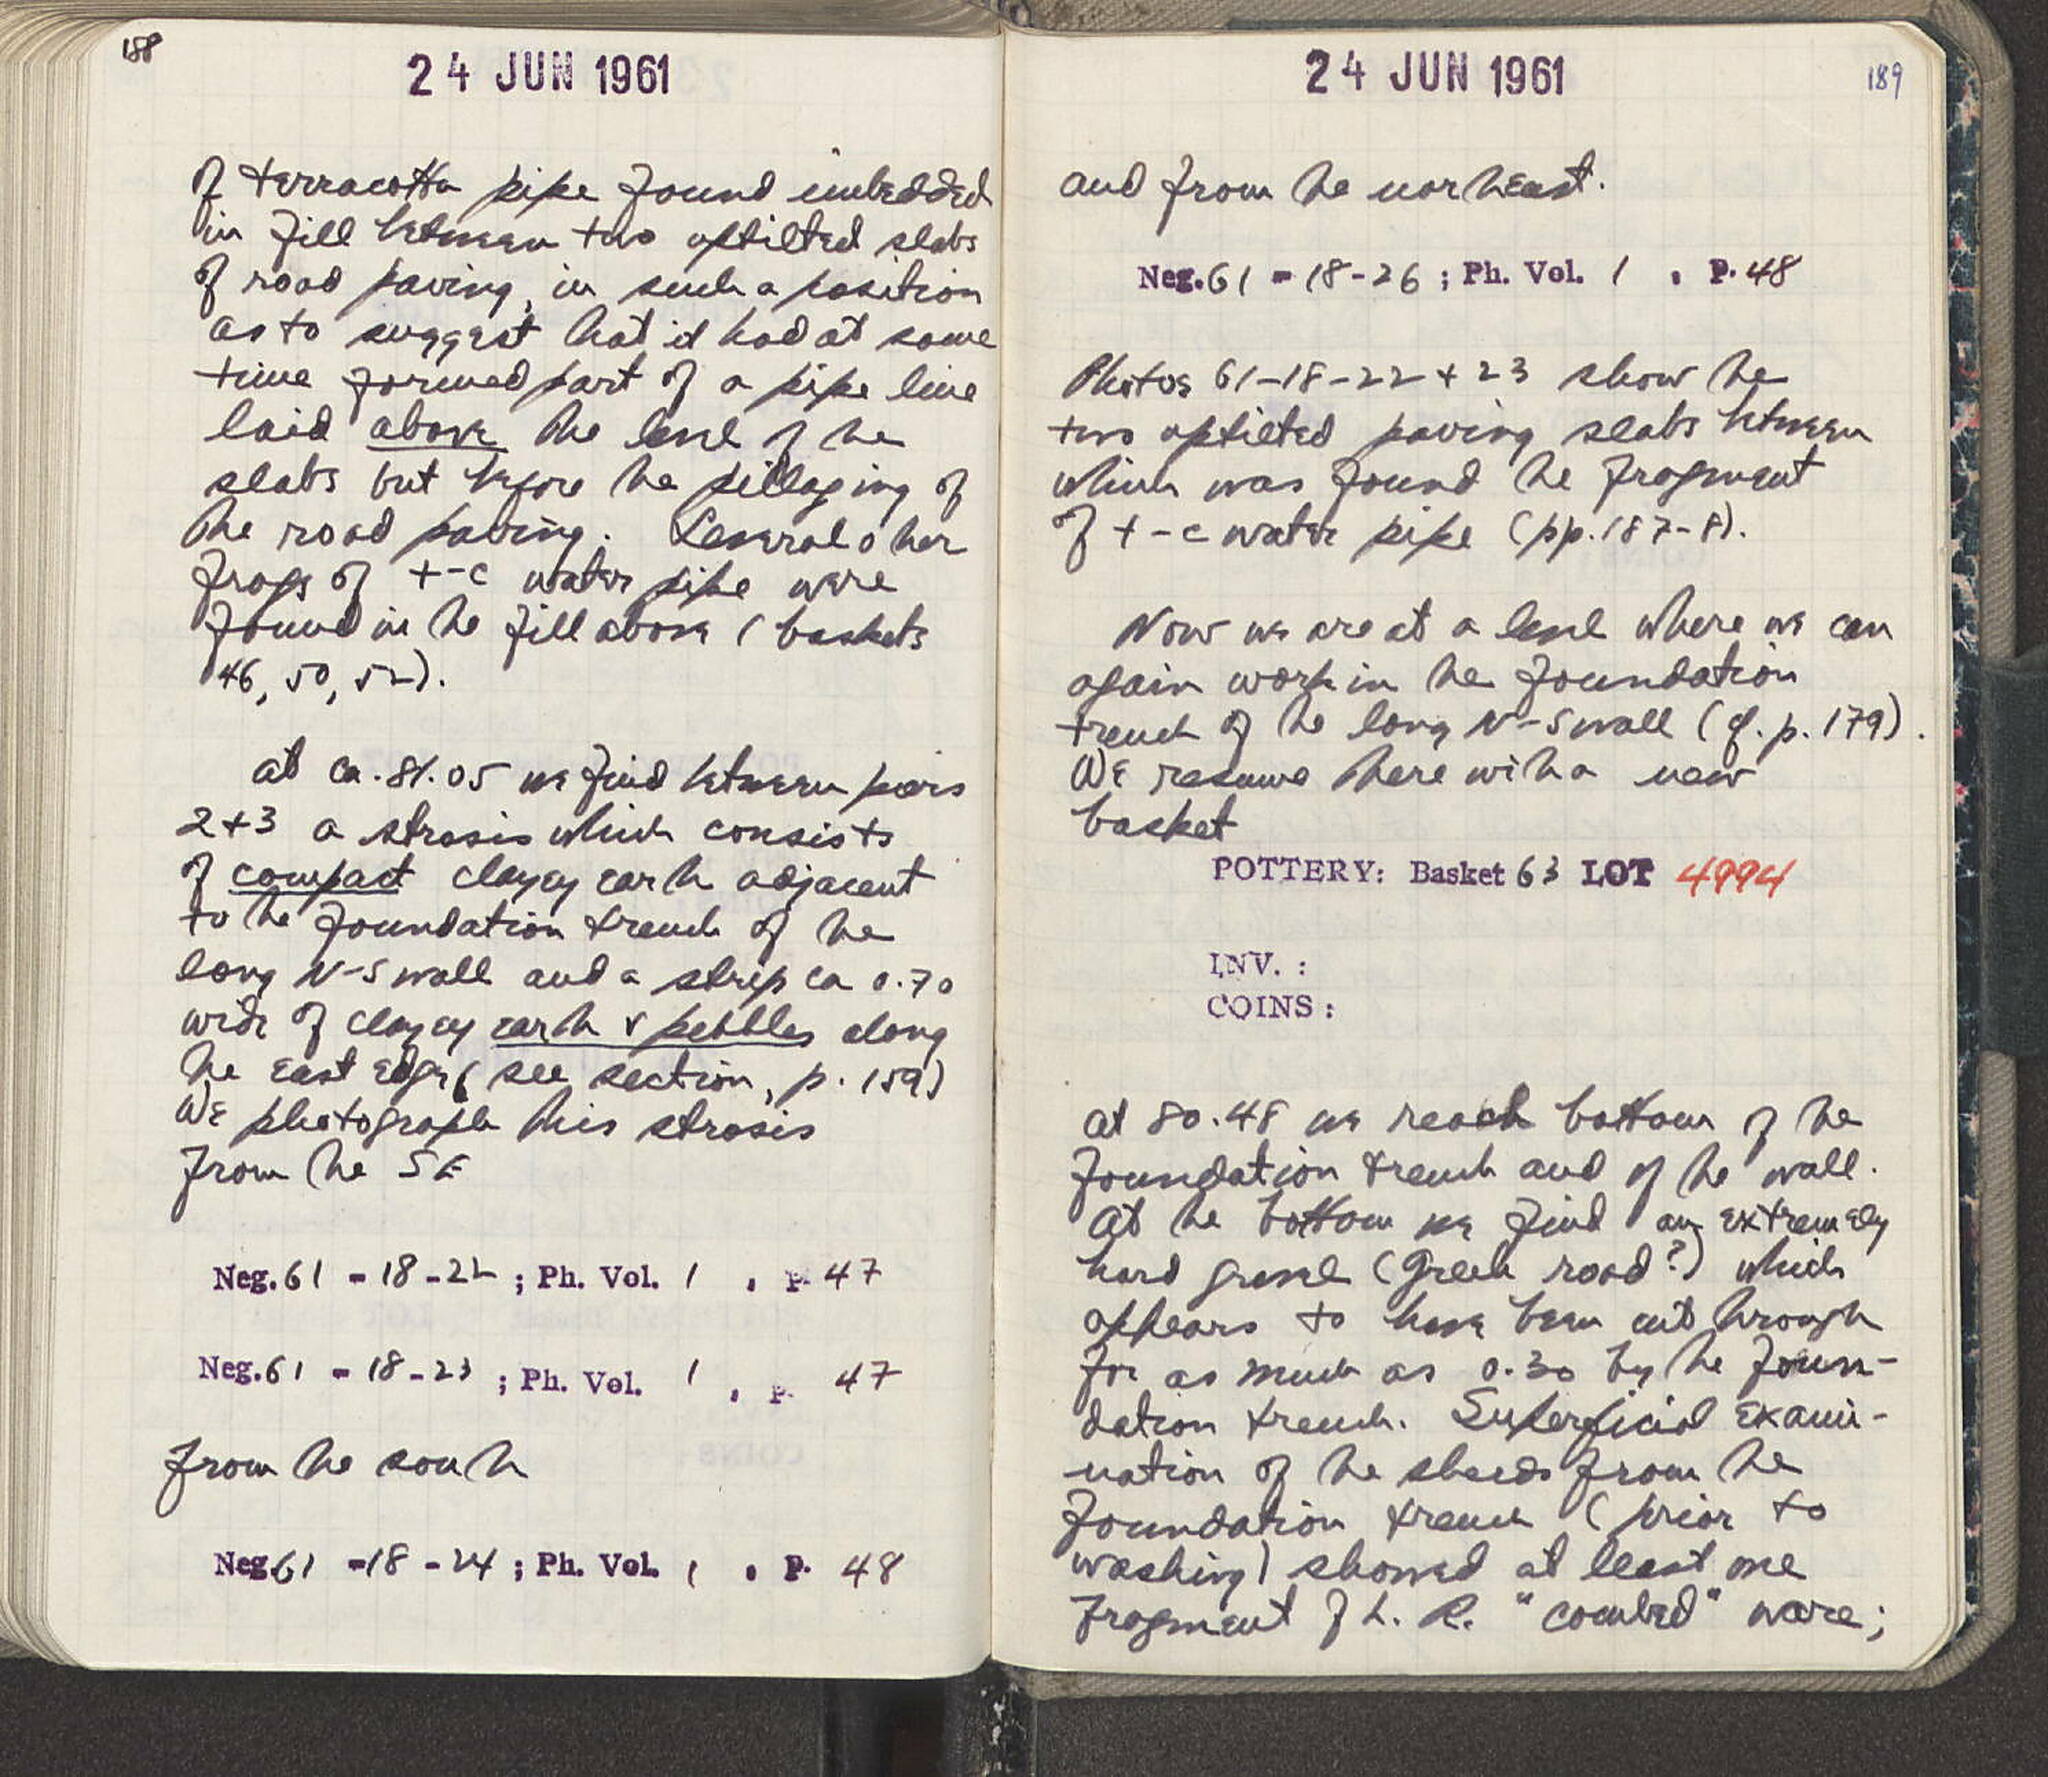 188
24 JUN 1961
of terracotta pipe found imbedded
in fill between two uptilted slabs
of road paving, in such a position
as to suggest that it had at some
time formed part of a pipe line
laid above the level of the
slabs but before the pillaging of
the road paving. Several other
frags of t-c water pipe were
found in the fill above (baskets
46, 50, 52).
at ca. 81.05 we find between piers
2+3 a strosis which consists
of compact clayey earth adjacent
to the foundation trench of the
long N-S wall and a strip ca 0.70
wide of clayey earth & pebbles along
the east edge (see section, p. 159)
We photograph this strosis
from the SE
Neg. 61 - 18 - 22 ; Ph. Vol. 1 , p. 47
Neg. 61 - 18 - 23 ; Ph. Vol. 1 , p. 47
from the south
Neg. 61 - 18 - 24 ; Ph. Vol. 1 , P. 48
24 JUN 1961
189
and from the northeast.
Neg. 61 - 18 - 26 ; Ph. Vol. 1 , P. 48
Photos 61-18-22 + 23 show the
two uptilted paving slabs between
which was found the fragment
of t-c water pipe (pp. 187-8).
Now we are at a level where we can
again work in the foundation
trench of the long N-S wall (cf. p. 179).
We resume there with a new
basket
POTTERY: Basket 63 LOT 4994
INV. :
COINS :
at 80.48 we reach bottom of the
foundation trench and of the wall.
At the bottom we find an extremely
hard gravel (Greek road?) which
appears to have been cut through
for as much as 0.30 by the foun-
dation trench. Superficial exami-
nation of the sherds from the
foundation trench (prior to
washing) showed at least one
fragment of L. R. "combed" ware;